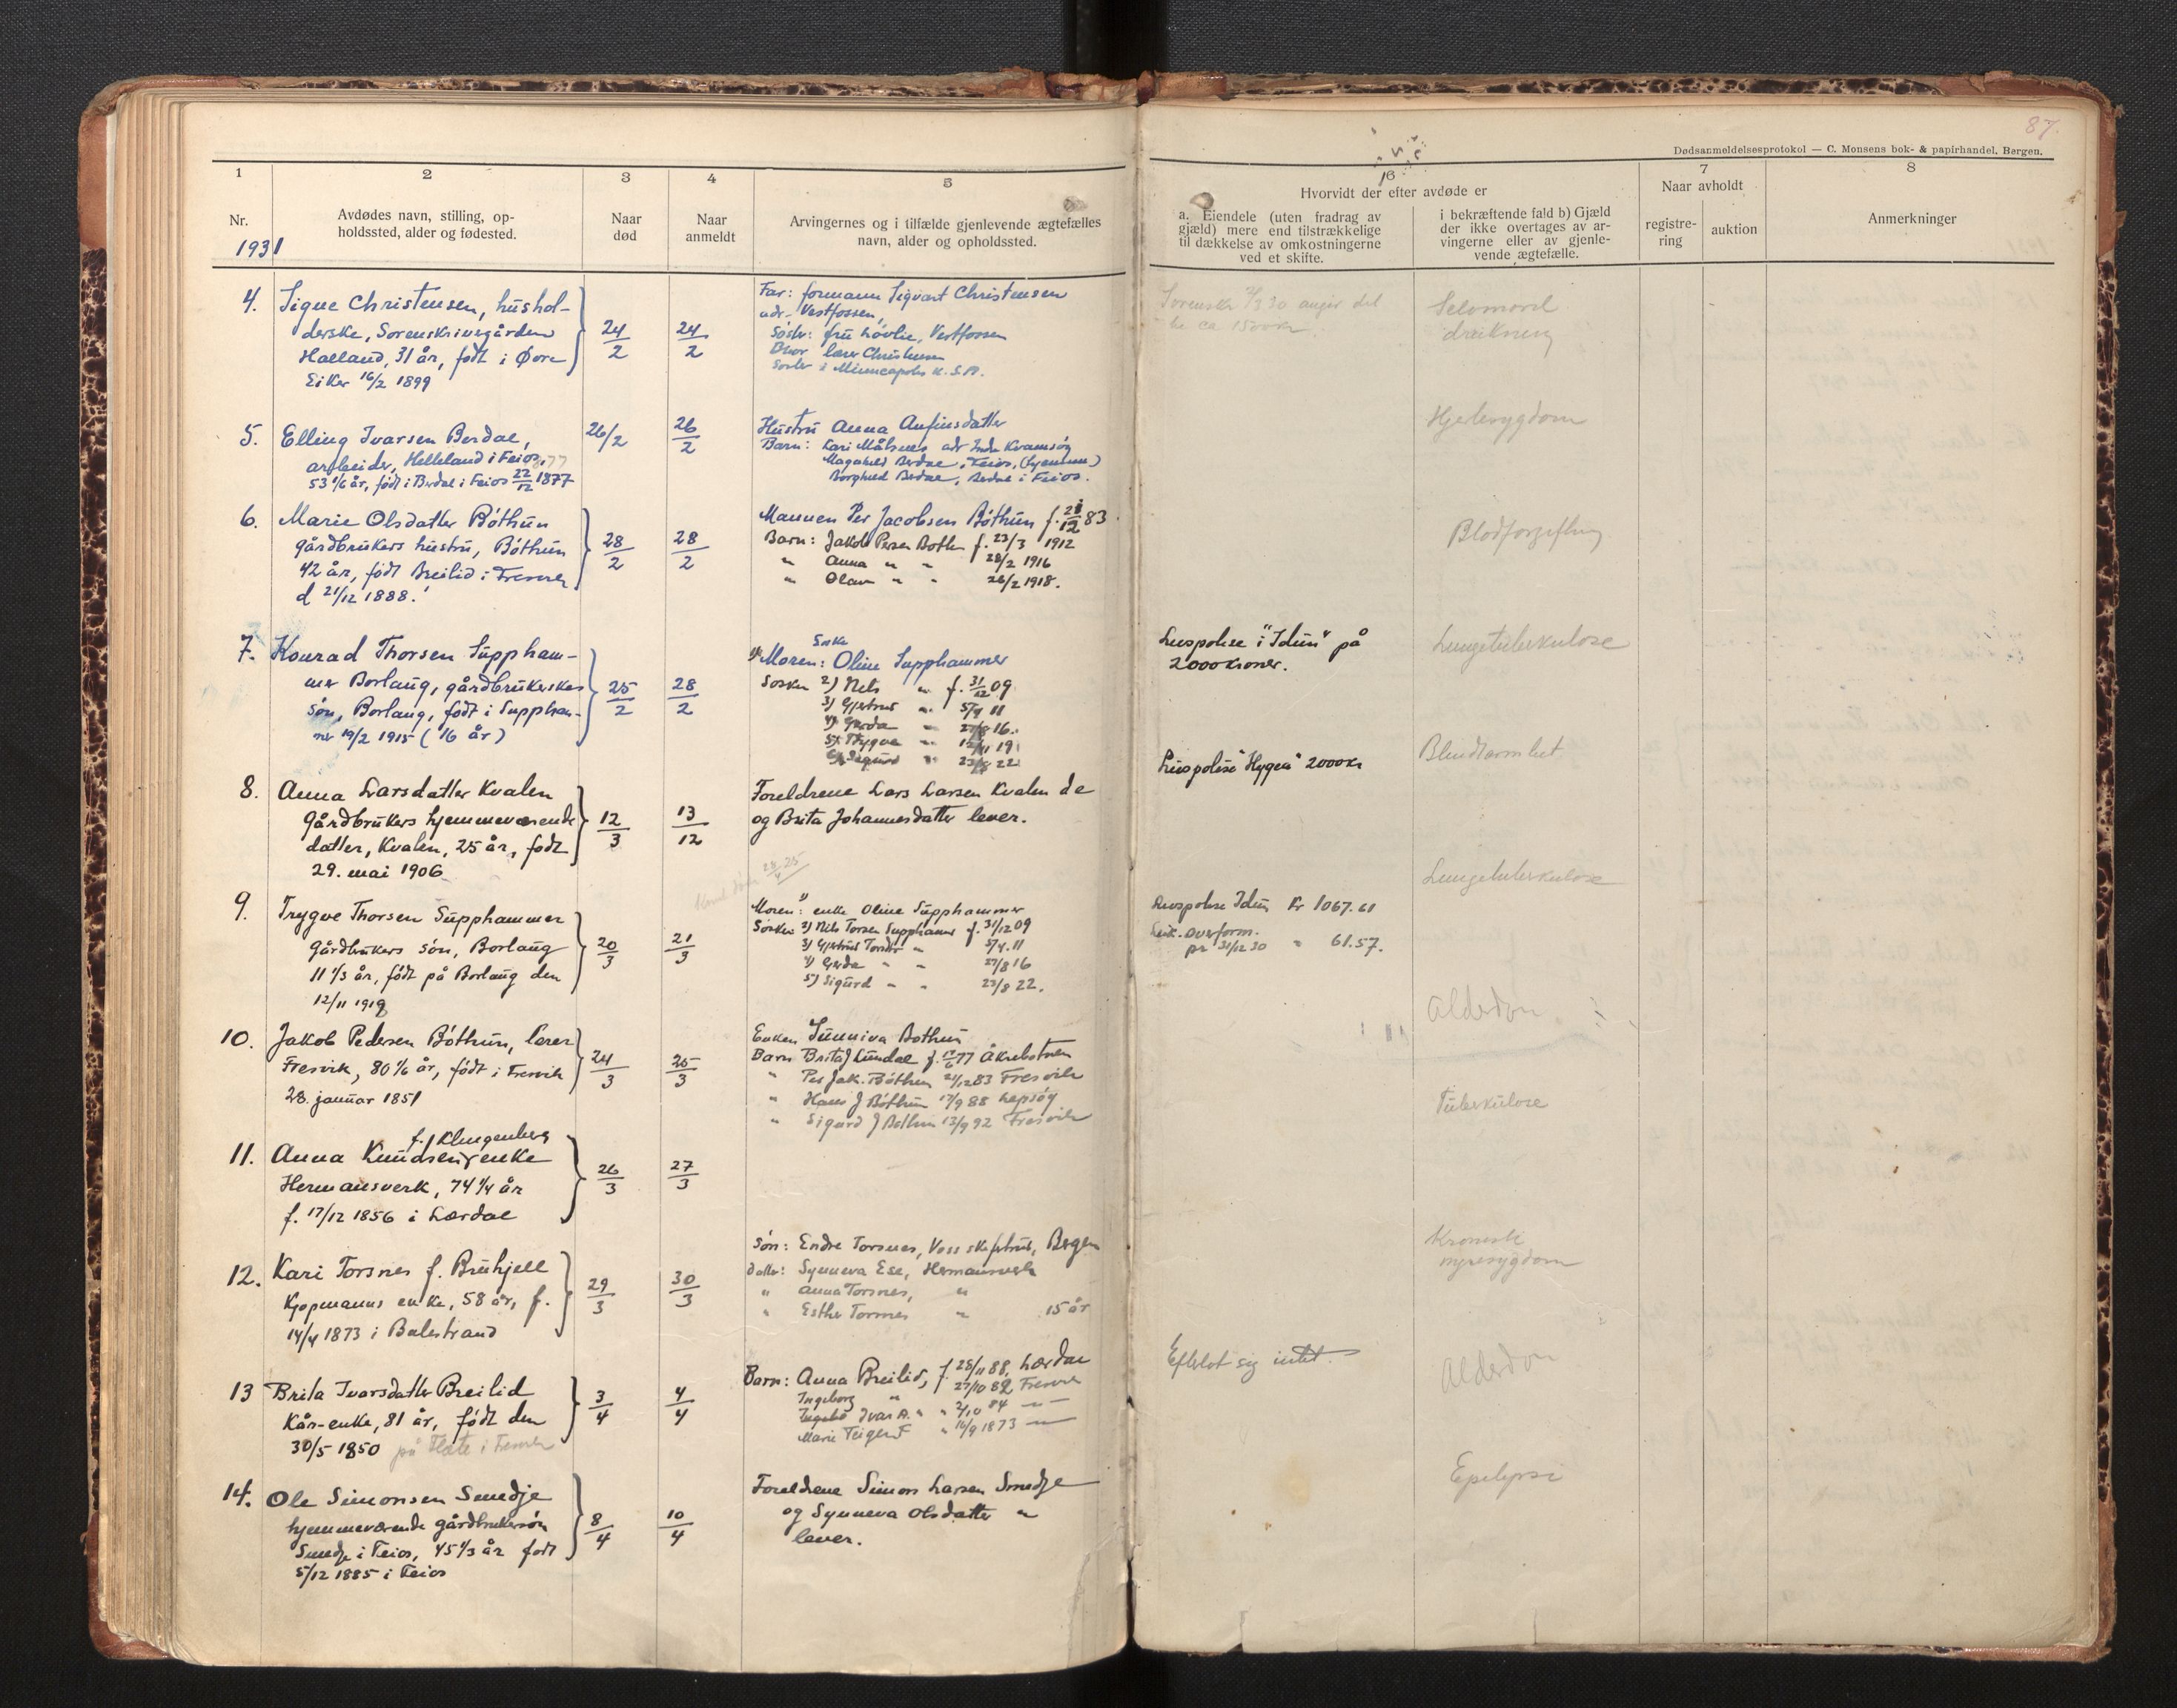 87.
Dødsanmeldelsesprotokol — C. Monsens bok- & papirhandel, Bergen.
1
2
3
4
5
6
7
8
Nr.
1931
Avdødes navn, stilling, op-
holdssted, alder og fødested.
Naar
død
Naar
anmeldt
Arvingernes og i tilfælde gjenlevende ægtefælles
navn, alder og opholdssted.
Hvorvidt der efter avdøde er
a. Eiendele (uten fradrag av
gjæld) mere end tilstrækkelige
til dækkelse av omkostningerne
ved et skifte.
i bekræftende fald b) Gjæld
der ikke overtages av ar-
vingerne eller av gjenle-
vende ægtefælle.
Naar avholdt
registre-
ring
auktion
Anmerkninger
4. Signe Christensen, hushol-
derske, Sorenskrivergården
Halland, 31 år, født i Øvre
Eiker 16/2 1899
24/2
24/2
Far: formann Sigvart Christensen
adr. Vestfossen,
Søster: fru Løvlie, Vestfossen
Bror lærer Christensen
Søster i Minneapolis U.S.A.
Sorenskr. 30 angir det
ca 1500 kr
Selvmord
drukning
5. Elling Ivarsen Berdal,
arbeider, Helleland i Feios,
53 1/6 år, født i Berdal i Feios 22/12 1877
26/2
26/2
Hustru Anna Anfinsdatter
Barn: Kari Målsnes adr Indre Kvamsøy
Magnhild Berdal, Feios, (hjemme)
Borghild Berdal, Berdal i Feios.
Hjertesygdom
6. Marie Olsdatter Bøthun
gårdbrukers hustru, Bøthun
42 år, født Breilid i Fresvik
d 21/12 1888.
28/2
28/2
Mannen Per Jacobsen Bøthun f. 21/12 83.
Barn: Jakob Persen Bothun f. 23/3 1912
" Anna " " 28/2 1916
" Olav " " 26/2 1918.
Blodforgiftning
7. Konrad Thorsen Suppham-
mer Borlaug, gårdbrukerskes
søn, Borlaug, født i Suppham-
mer 19/2 1915 (16 år)
25/2
28/2
Enke
1) Moren: Oline Supphammer
Søsken 2) Nils " f. 31/12 09
3) Gjertrud " 5/4 11
4) Gerda " 27/8 16.
5) Trygve " 12/11 19
6) Sigurd " 23/8 22
Livspolise i "Idun" på
2000 kroner.
Lungetuberkulose
8. Anna Larsdatter Kvalen
gårdbrukers hjemmeværende
datter, Kvalen, 25 år, født
29. mai 1906
12/3
13/12
Foreldrene Lars Larsen Kvalen de
og Brita Johannesdatter lever.
Livspolise "Hygea" 2000 kr
Blindtarmbet
9. Trygve Thorsen Supphammer
gårdbrukers søn, Borlaug
11 1/3 år, født på Borlaug den
12/11 1919
20/3
21/3
Moren: enke Oline Supphammer
Søsken 2) Nils Torsen Supphammer f. 31/12 09
3) Gjertrud Torsdtr " 5/4.11
4) Gerda " " 27/8 16
5) Sigurd " " 23/8 22.
Livspolise Idun Kr 1067.61
overform.
pr 31/12 30 " 61.57.
Lungetuberkulose
10. Jakob Pedersen Bøthun, lærer
Fresvik, 80 1/6 år, født i Fresvik
28. januar 1851
24/3
25/3
Enken Sunniva Bothun
Barn Brita J Lundal f. 77 Åkrebotnen
" Per Jak. Bøthun 21/12 83 Fresvik
" Hans J Bøthun 17/9 88 Lepsøy
" Sigurd J Bøthun 13/9 92 Fresvik
Alderdom
11. Anna Knudsen, enke
f. Klingenberg
Hermansverk, 74 1/4 år
f. 17/12 1856 i Lærdal
26/3
27/3
Tuberkulose
12. Kari Torsnes f. Bruhjell
Kjøpmanns enke, 58 år, f.
14/4 1873 i Balestrand
29/3
30/3
Søn: Endre Torsnes, Bergen
datter: Synneva Ese, Hermansverk
" Anna Torsnes, "
" Esther Torsnes " 15 år
Kronisk
nyresygdom
13 Brita Ivarsdatter Breilid
Kår-enke, 81 år, født den
30/5 1850 på Flete i Fresvik
3/4
4/4
Barn: Anna Breilid, f. 28/11 88, Lærdal
Ingeborg " 27/10 82 Fresvik
Ivar A. " " 2/10 84 — " —
Marie Teigen F " 16/9 1873 — " —
Efterlot sig intet.
Alderdom
14. Ole Simonsen Smedje
hjemmeværende gårdbrukersøn
Smedje i Feios, 45 1/3 år født
5/12 1885 i Feios
8/4
10/4
Foreldrene Simon Larsen Smedje
og Synneva Olsdatter "
lever.
Epilepsi